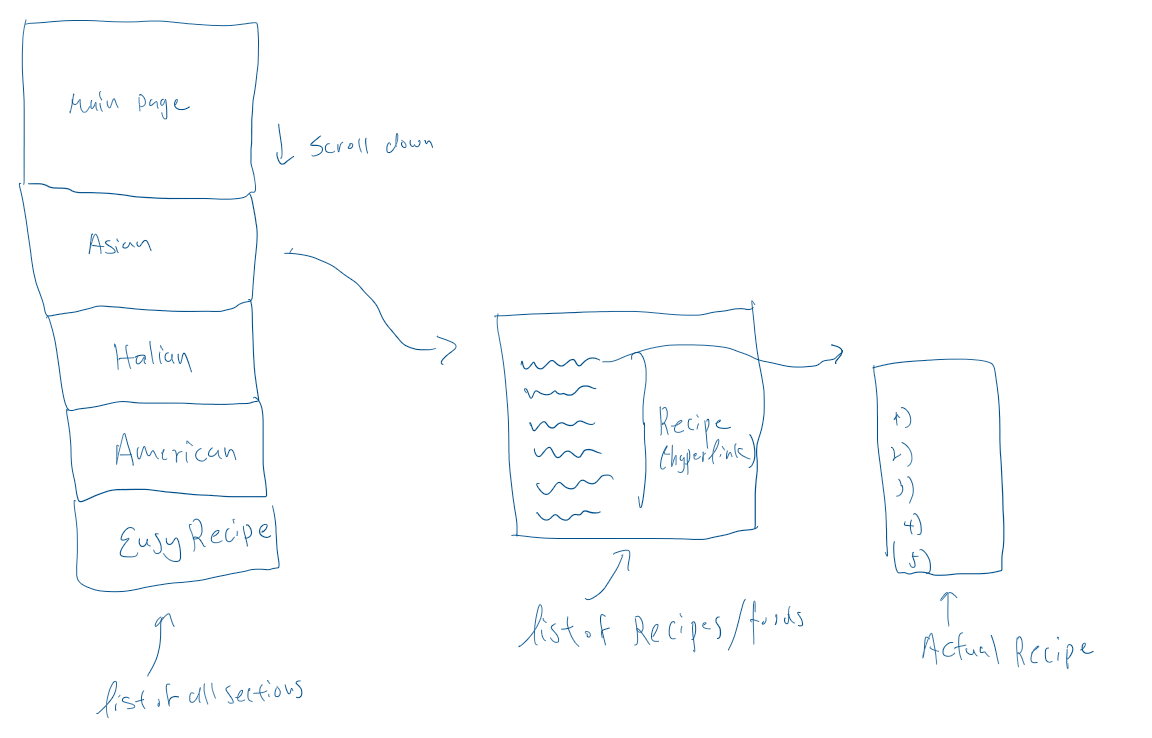 Main page
↓ Scroll down
Asian
Italian
American
Easy Recipe
list of all sections
Recipe
(hyperlink)
list of Recipes/foods
1)
2)
3)
4)
5)
Actual Recipe